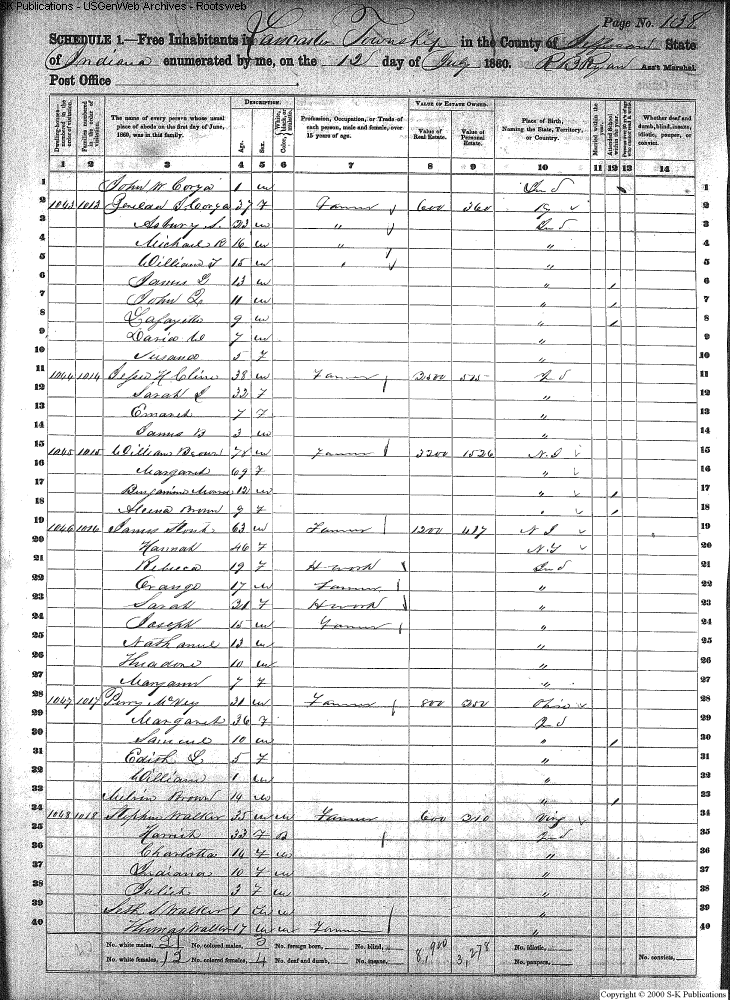 SK Publications - USGenWeb Archives - Rootsweb
Page No. 138
SCHEDULE 1.—Free Inhabitants in Lancaster Township in the County of Jefferson State
of Indiana enumerated by me, on the 12 day of July 1860. R B Ryan Ass't Marshal.
Post Office
Dwelling-houses—numbered in the order of visitation.
Families numbered in the order of visitation.
The name of every person whose usual place of abode on the first day of June, 1860, was in this family.
DESCRIPTION.
Age.
Sex.
Color, White, black, or mulatto.
Profession, Occupation, or Trade of each person, male and female, over 15 years of age.
VALUE OF ESTATE OWNED.
Value of Real Estate.
Value of Personal Estate.
Place of Birth, Naming the State, Territory, or Country.
Married within the year.
Attended School within the year.
Whether deaf and dumb, blind, insane, idiotic, pauper, or convict.
1 2 3 4 5 6 7 8 9 10 11 12 13 14
1 John W Corya 1 m Ind 1
2 1043 1013 Corya 37 f Farmer 600 360 Ky 2
3 Asbury S. 23 m " Ind 3
4 Michael R 16 m " " 4
5 William T 15 m " " 5
6 James G 13 m " 6
7 John Q 11 m " 7
8 Lafayette 9 m " 8
9 David W 7 m " 9
10 Susana 5 f " 10
11 1044 1014 Jesse H Cline 38 m Farmer 2500 575 Ind 11
12 Sarah J 32 f " 12
13 7 f " 13
14 James B 3 m " 14
15 1045 1015 William Brown 71 m Farmer 3200 1526 N.J 15
16 Margaret 69 f " 16
17 Benjamine 12 m " 17
18 Brown 9 f " 18
19 1046 1016 James 63 m Farmer 1200 437 N J 19
20 Hannah 46 f N.Y 20
21 Rebeca 19 f H work Ind 21
22 Orange 17 m Farmer " 22
23 Sarah 21 f H work " 23
24 Joseph 15 m Farmer " 24
25 Nathaniel 13 m " 25
26 10 m " 26
27 Maryann 7 f " 27
28 1047 1017 Perry McVey 31 m Farmer 800 250 Ohio 28
29 Margaret 36 f Ind 29
30 Samuel 10 m " 30
31 Edith L 5 f " 31
32 William 1 m " 32
33 Melvin Brown 14 m " 33
34 1048 1018 Stephen Walker 35 m m Farmer 600 210 Virg 34
35 Harriet 33 f B Ind 35
36 Charlotta 14 f m " 36
37 Indiana 10 f m " 37
38 Juliet 3 f m " 38
39 Seth S Walker 1 m m " 39
40 Thomas Walker 17 m m Farmer " 40
No. white males, 21 No. colored males, 3 No. foreign born, No. blind, 8,900 3,278 No. idiotic,
No. white females, 12 No. colored females, 4 No. deaf and dumb, No. insane, No. paupers, No. convicts,
Copyright © 2000 S-K Publications